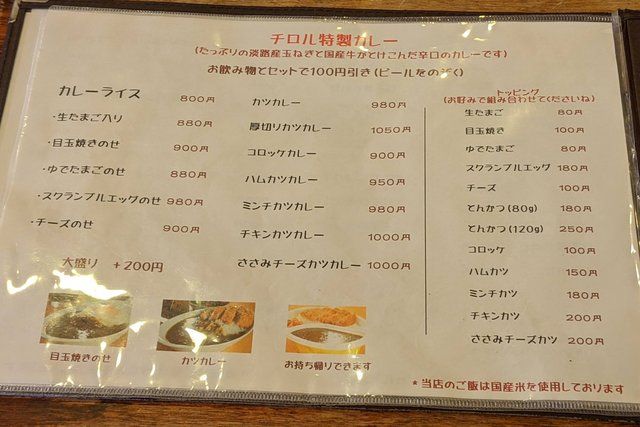 チロル特製カレー
(たっぷりの淡路産玉ねぎと国産牛がとけこんだ辛口のカレーです)
お飲み物とセットで100円引き(ビールをのぞく)
カレーライス 800円
・生たまご入り 880円
・目玉焼きのせ 900円
・ゆでたまごのせ 880円
・スクランブルエッグのせ 980円
・チーズのせ 900円
大盛り +200円
カツカレー 980円
厚切りカツカレー 1050円
コロッケカレー 900円
ハムカツカレー 950円
ミンチカツカレー 980円
チキンカツカレー 1000円
ささみチーズカツカレー 1000円
トッピング
(お好みで組み合わせてくださいね)
生たまご 80円
目玉焼き 100円
ゆでたまご 80円
スクランブルエッグ 180円
チーズ 100円
とんかつ(80g) 180円
とんかつ(120g) 250円
コロッケ 100円
ハムカツ 150円
ミンチカツ 180円
チキンカツ 200円
ささみチーズカツ 200円
目玉焼きのせ
カツカレー
お持ち帰りできます
*当店のご飯は国産米を使用しております